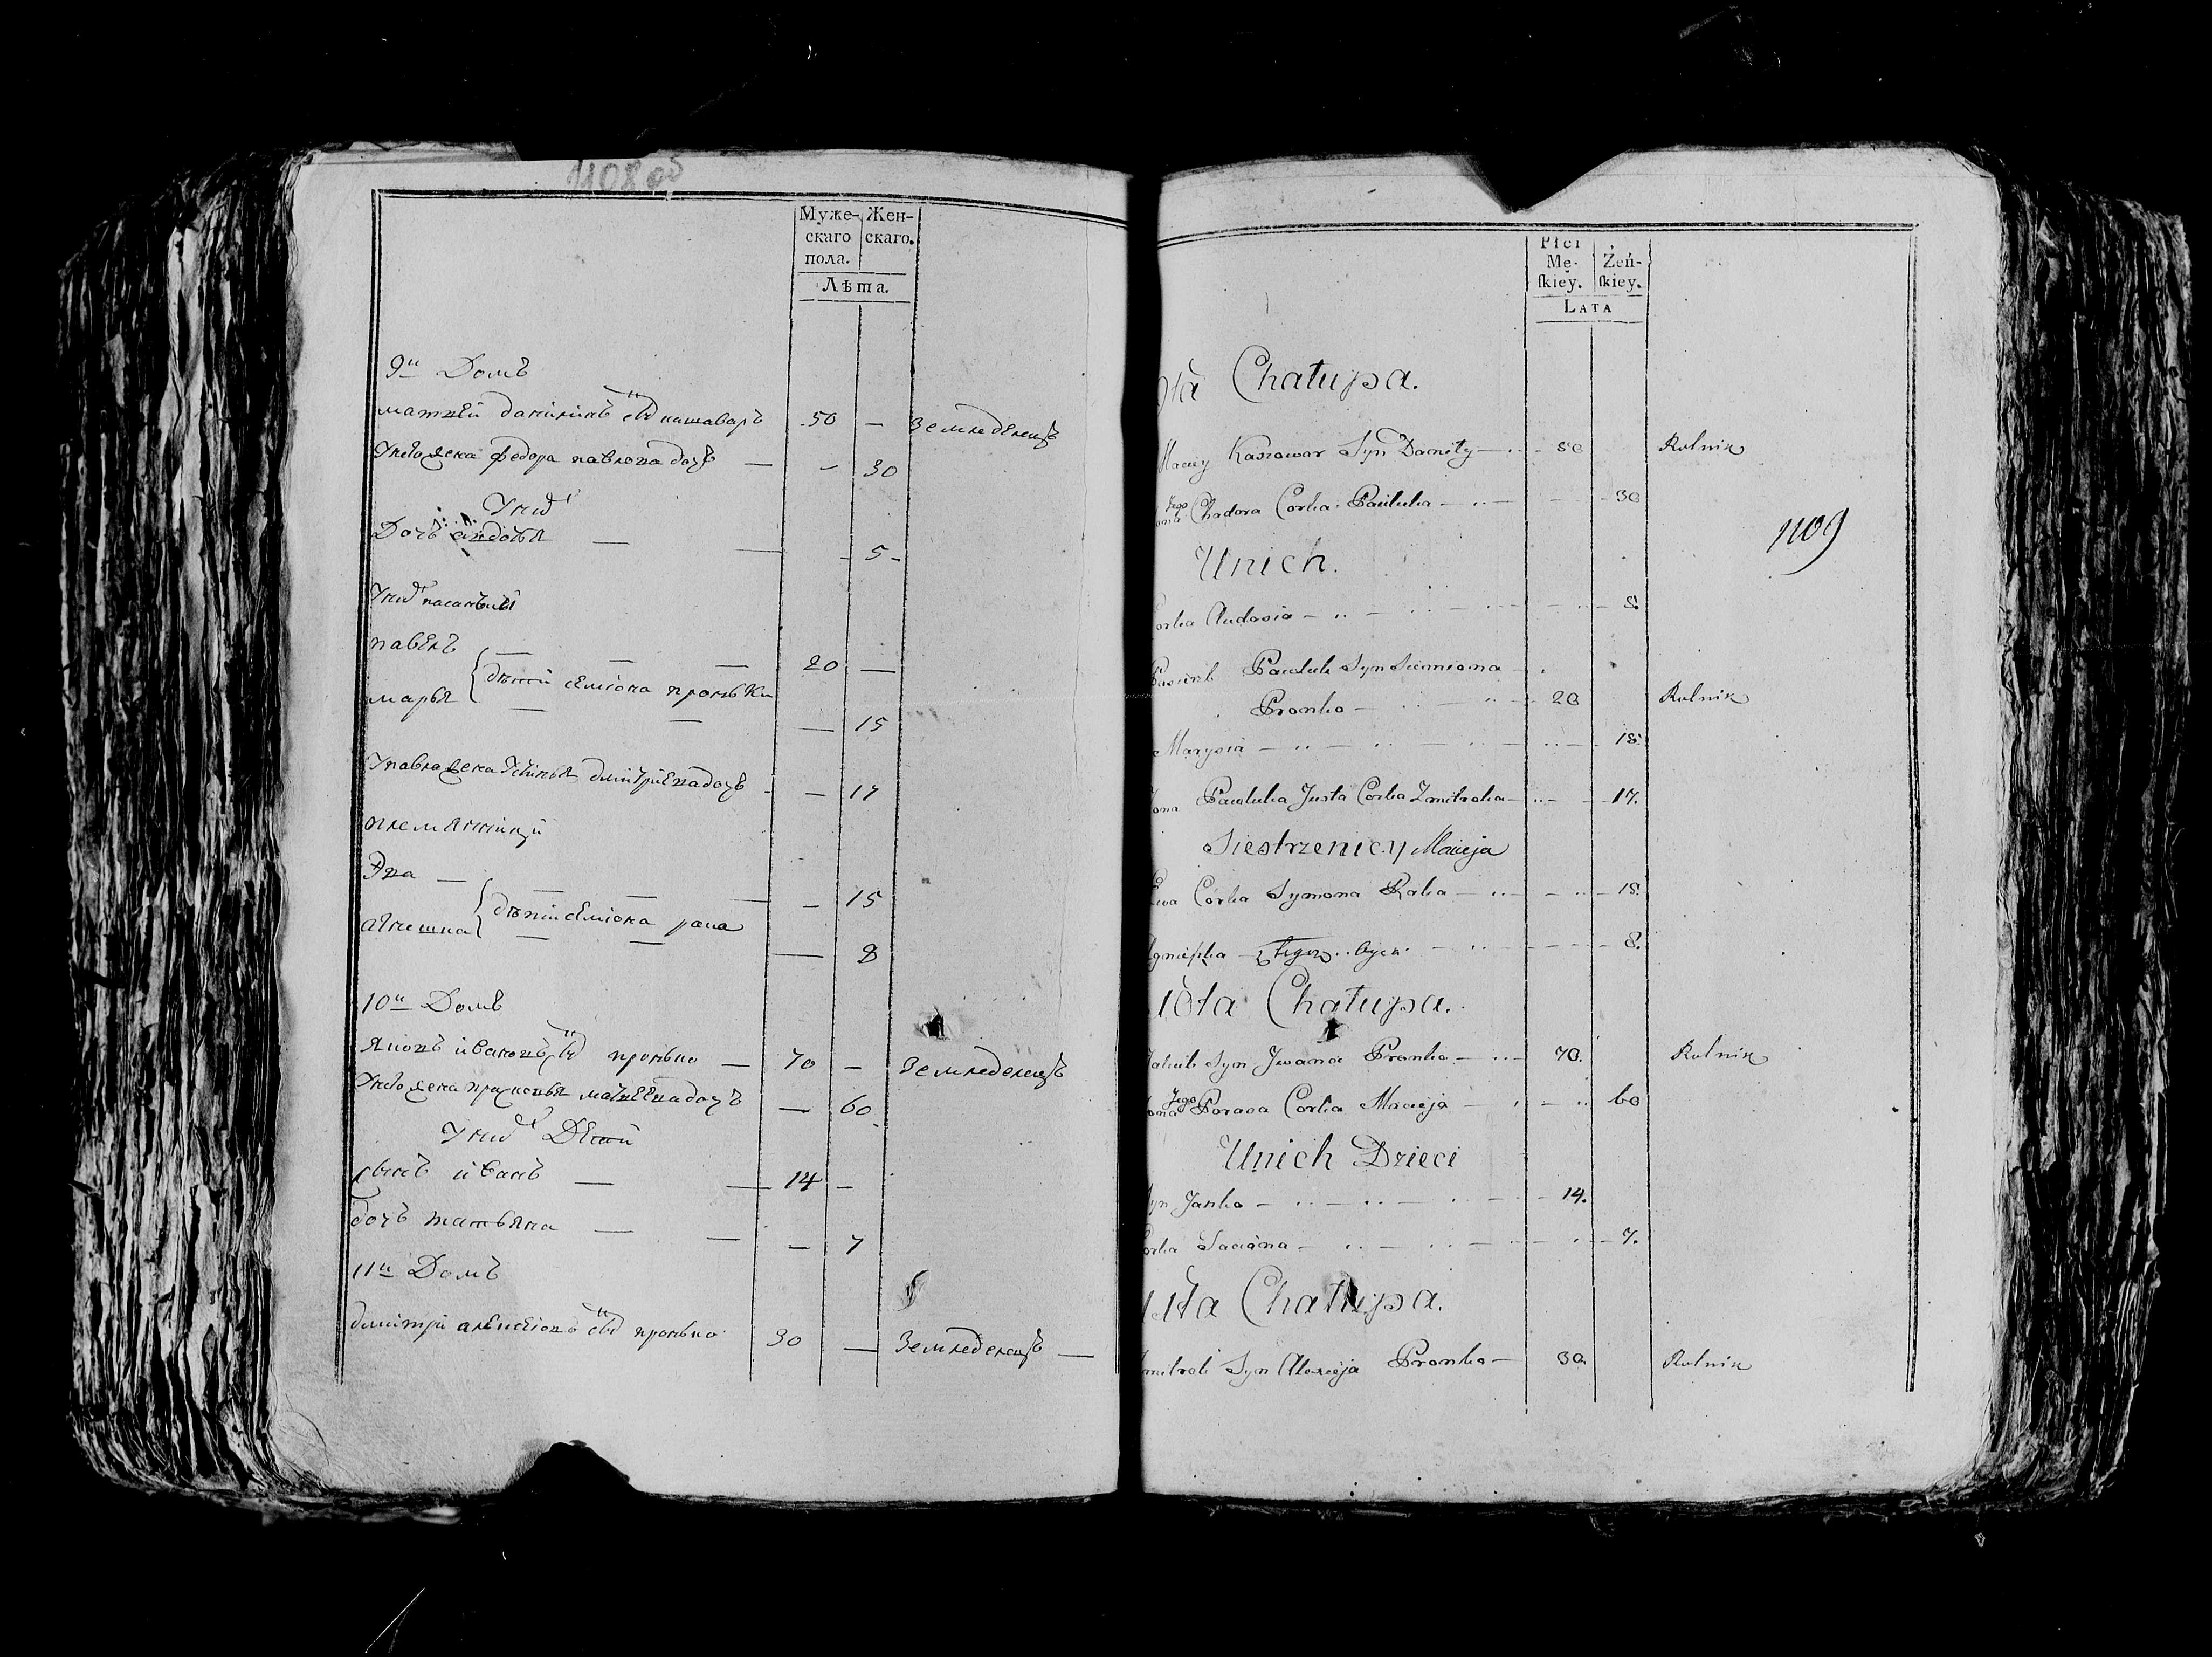 1108 об
Муже-
скаго
пола.
Жен-
скаго.
Лѣта.
9й Домъ
матвей данилинъ снъ кашаваръ .50 — Земледелецъ
Унего жена федора павлова дочъ — — 30
Уних
Дочъ авдотья — — - 5 -
Уних пасынъки
павелъ — — — 20 —
марья { дѣти семіона пронъки
— — — 15
Упавла жена Устинья дмитріева дочъ - — 17
племянницы
Эва — — — — — 15
агнешка { дѣти семіона рака
— — — 8
10й Домъ
яковъ ивановъ снъ пронько — 70 — Земледелецъ
Унего жена прасковья матвеева дочъ — 60
Уних Дети
сынъ иванъ — — 14 —
дочъ татьяна — — — 7
11й Домъ
дмитрій алексіовъ снъ пронько 30 — Земледелецъ —
Płci
Mę-
skiey.
Żeń-
skiey.
LATA
9ta Chałupa.
Maciey Kaszawar Syn Daniły — 50 Rolnik
Jego
żona Chadora Corka Pauluka — 30
1109
Unich.
Corka Audosia — 5
Pasierb Pauluk Syn Siemiona
Pronko — 20 Rolnik
Marysia — 15.
Żona Pauluka Justa Corka Zmitroka — 17.
Siestrzenicy Macieja
Ewa Córka Symona Raka — 15.
Agnieszka — tegoż Oyca — 8.
10ta Chałupa.
Jakub Syn Jwana Pronko — 70. Rolnik
Jego
żona Parasa Corka Macieja — 60
Unich Dzieci
Syn Janko — 14.
Corka Taciana — 7.
11ta Chałupa.
Zmitrok Syn Alexieja Pronko — 30. Rolnik